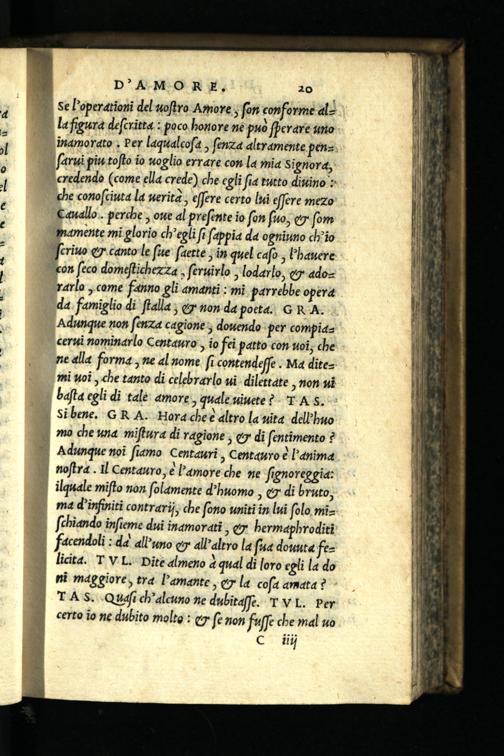 D'AMORE. 20
Se l'operationi del uostro Amore, son conforme al=
la figura descritta: poco honore ne può sperare uno
inamorato. Per laqualcosa, senza altramente pen=
sarui piu tosto io uoglio errare con la mia Signora,
credendo (come ella crede) che egli sia tutto diuino:
che conosciuta la uerità, essere certo lui essere mezo
Cauallo. perche, oue al presente io son suo, & som
mamente mi glorio ch'egli si sappia da ogniuno ch'io
scriuo & canto le sue saette, in quel caso, l'hauere
con seco domestichezza, seruirlo, lodarlo, & ado=
rarlo, come fanno gli amanti: mi parrebbe opera
da famiglio di stalla, & non da poeta. GRA.
Adunque non senza cagione, douendo per compia=
cerui nominarlo Centauro, io fei patto con uoi, che
ne alla forma, ne al nome si contendesse. Ma dite=
mi uoi, che tanto di celebrarlo ui dilettate, non ui
basta egli di tale amore, quale uiuete? TAS.
Si bene. GRA. Hora che è altro la uita dell'huo
mo che una mistura di ragione, & di sentimento?
Adunque noi siamo Centauri, Centauro è l'anima
nostra. Il Centauro, è l'amore che ne signoreggia:
ilquale misto non solamente d'huomo, & di bruto,
ma d'infiniti contrarij, che sono uniti in lui solo, mi=
schiando insieme dui inamorati, & hermaphroditi
facendoli: dà all'uno & all'altro la sua douuta fe=
licita. TVL. Dite almeno à qual di loro egli la do
ni maggiore, tra l'amante, & la cosa amata?
TAS. Quasi ch'alcuno ne dubitasse. TVL. Per
certo io ne dubito molto: & se non fusse che mal uo
C iiij